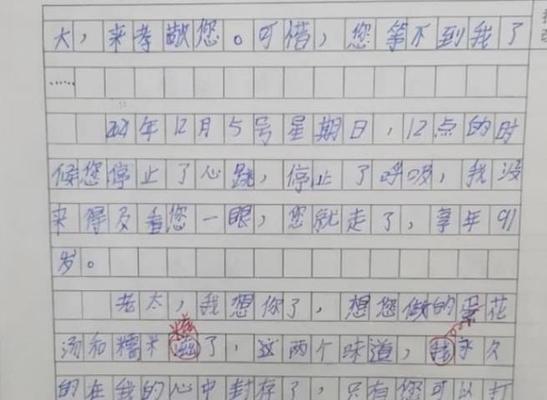 大，来孝敬您。可惜，您等不到我了
……
2021年12月5号星期日，12点的时
候您停止了心跳，停止了呼吸，我没
来得及看您一眼，您就走了，享年91
岁。
老太，我想你了，想您做的蛋花
汤和糯米滋了，这两个味道，我永久
的在我的心中封存了，只有您可以打